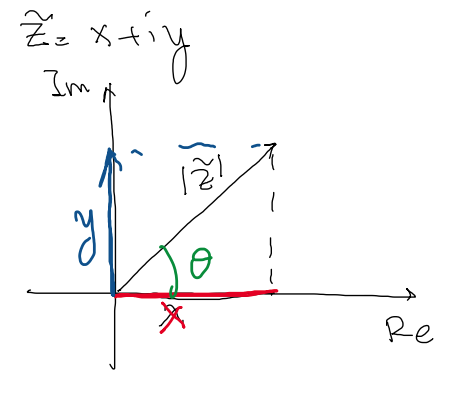 z̃ = x + iy
Im
|z̃|
y
θ
x
Re